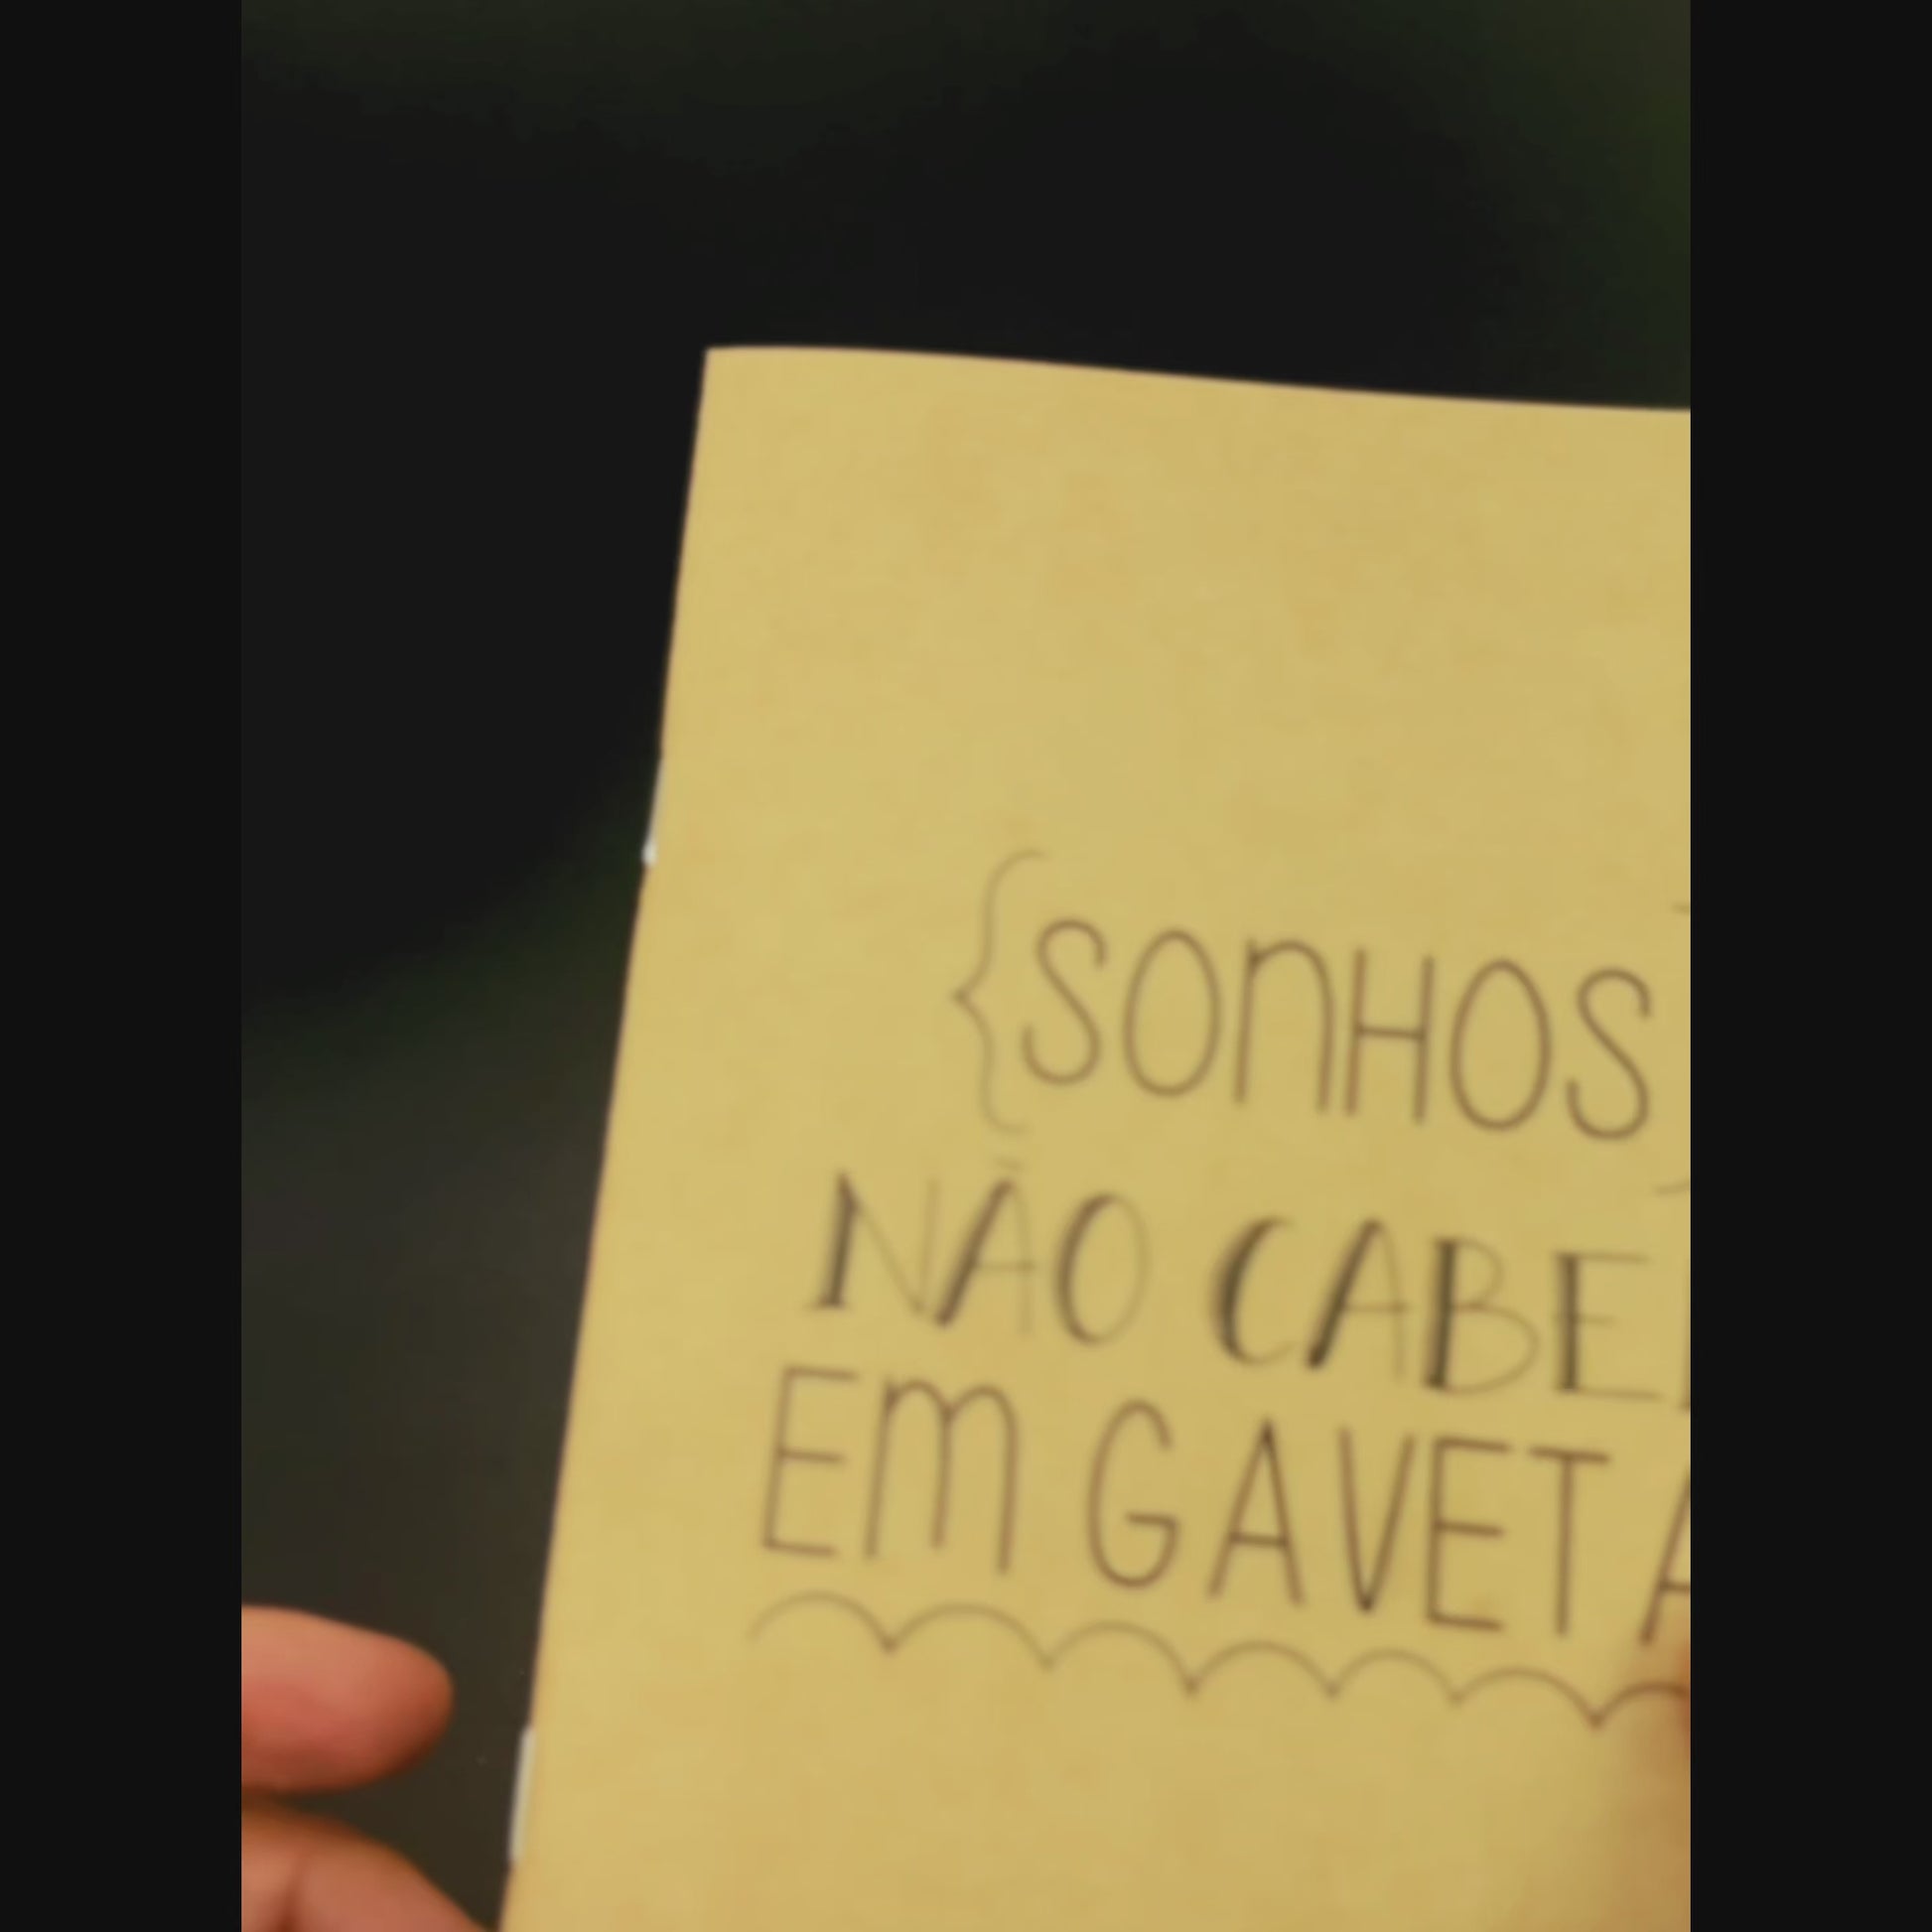 {SONHOS
NÃO CABE
EM GAVETA